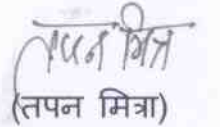 तपन मित्रा
(तपन मित्रा)